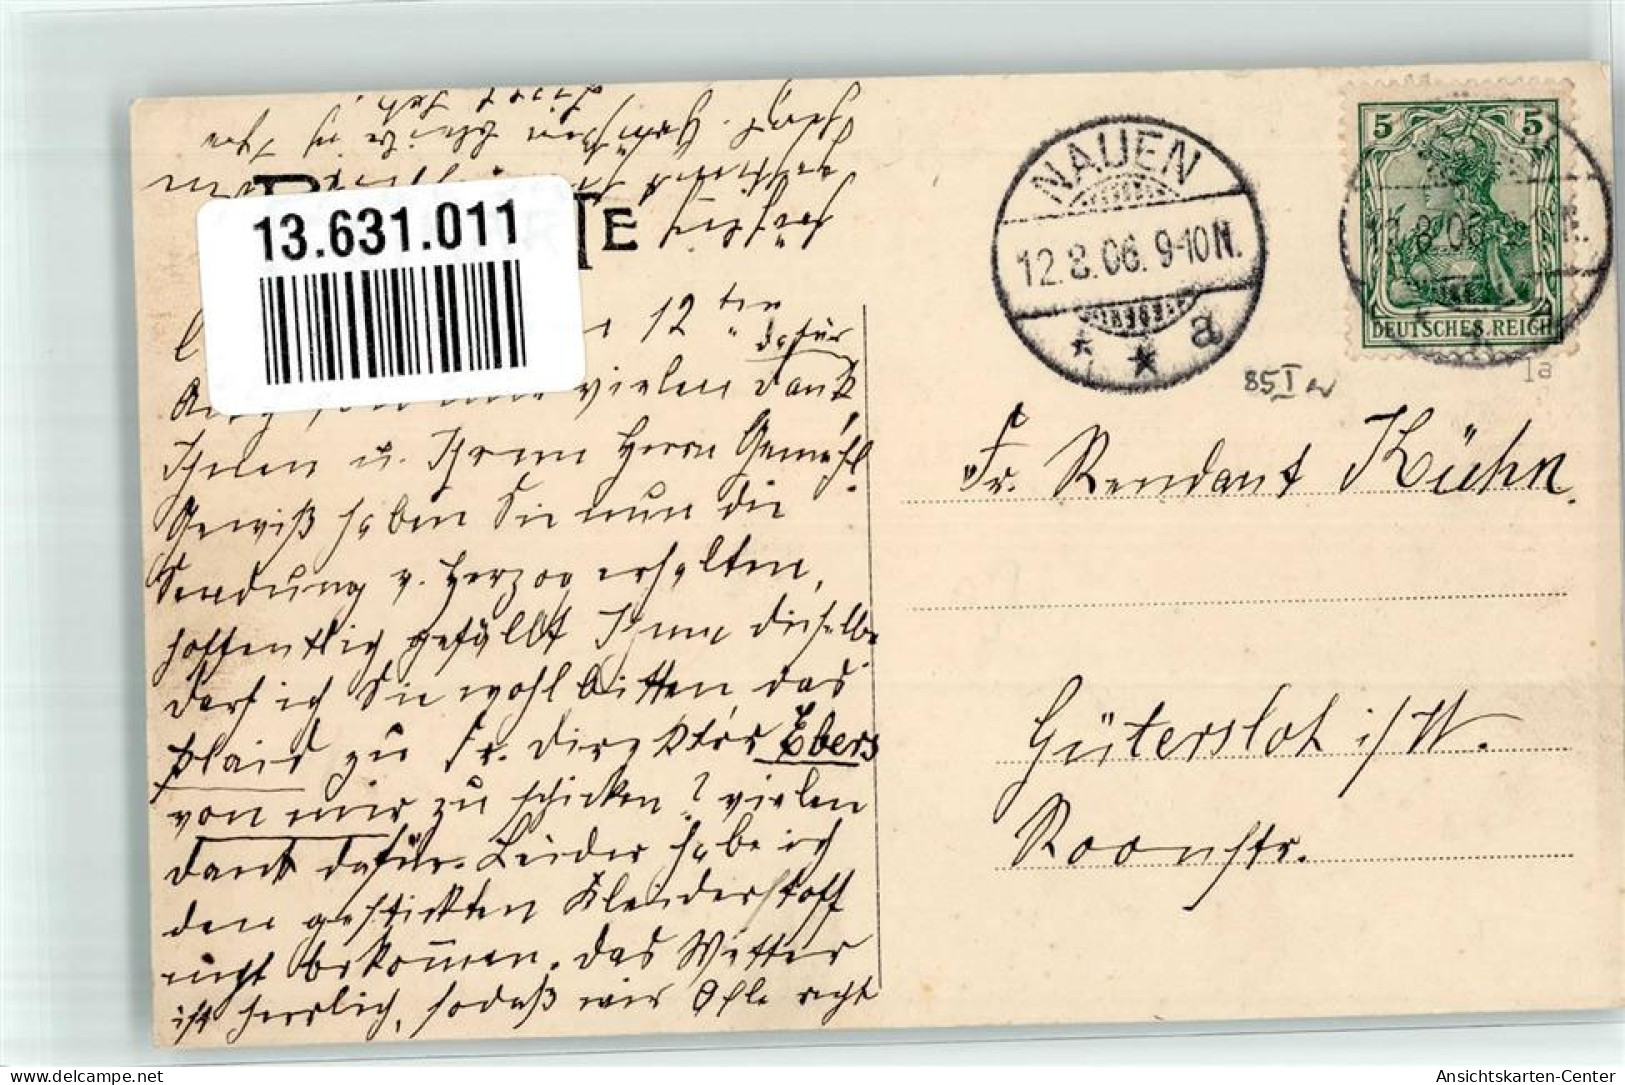 13.631.011
TE
12 ten
dafür
vielen Dank
Ihnen u. Ihrem Herrn Gemahl.
Gewiß haben Sie nun die
Sendung v. Herzog erhalten,
hoffentlich gefällt Ihnen dieselbe
darf ich Sie wohl bitten, das
plaid zu Fr. Direktor Ebers
von mir zu schicken? vielen
Dank dafür. Leider habe ich
den gestickten Kleiderstoff
nicht bekommen. Das Wetter
ist herrlich, sodaß wir Alle recht
NAUEN
12.8.06. 9-10 N.
* * a
5 5
DEUTSCHES REICH
85 I
1a
Fr. Rendant Kühn.
Gütersloh i/W.
Roonstr.
Ansichtskarten-Center